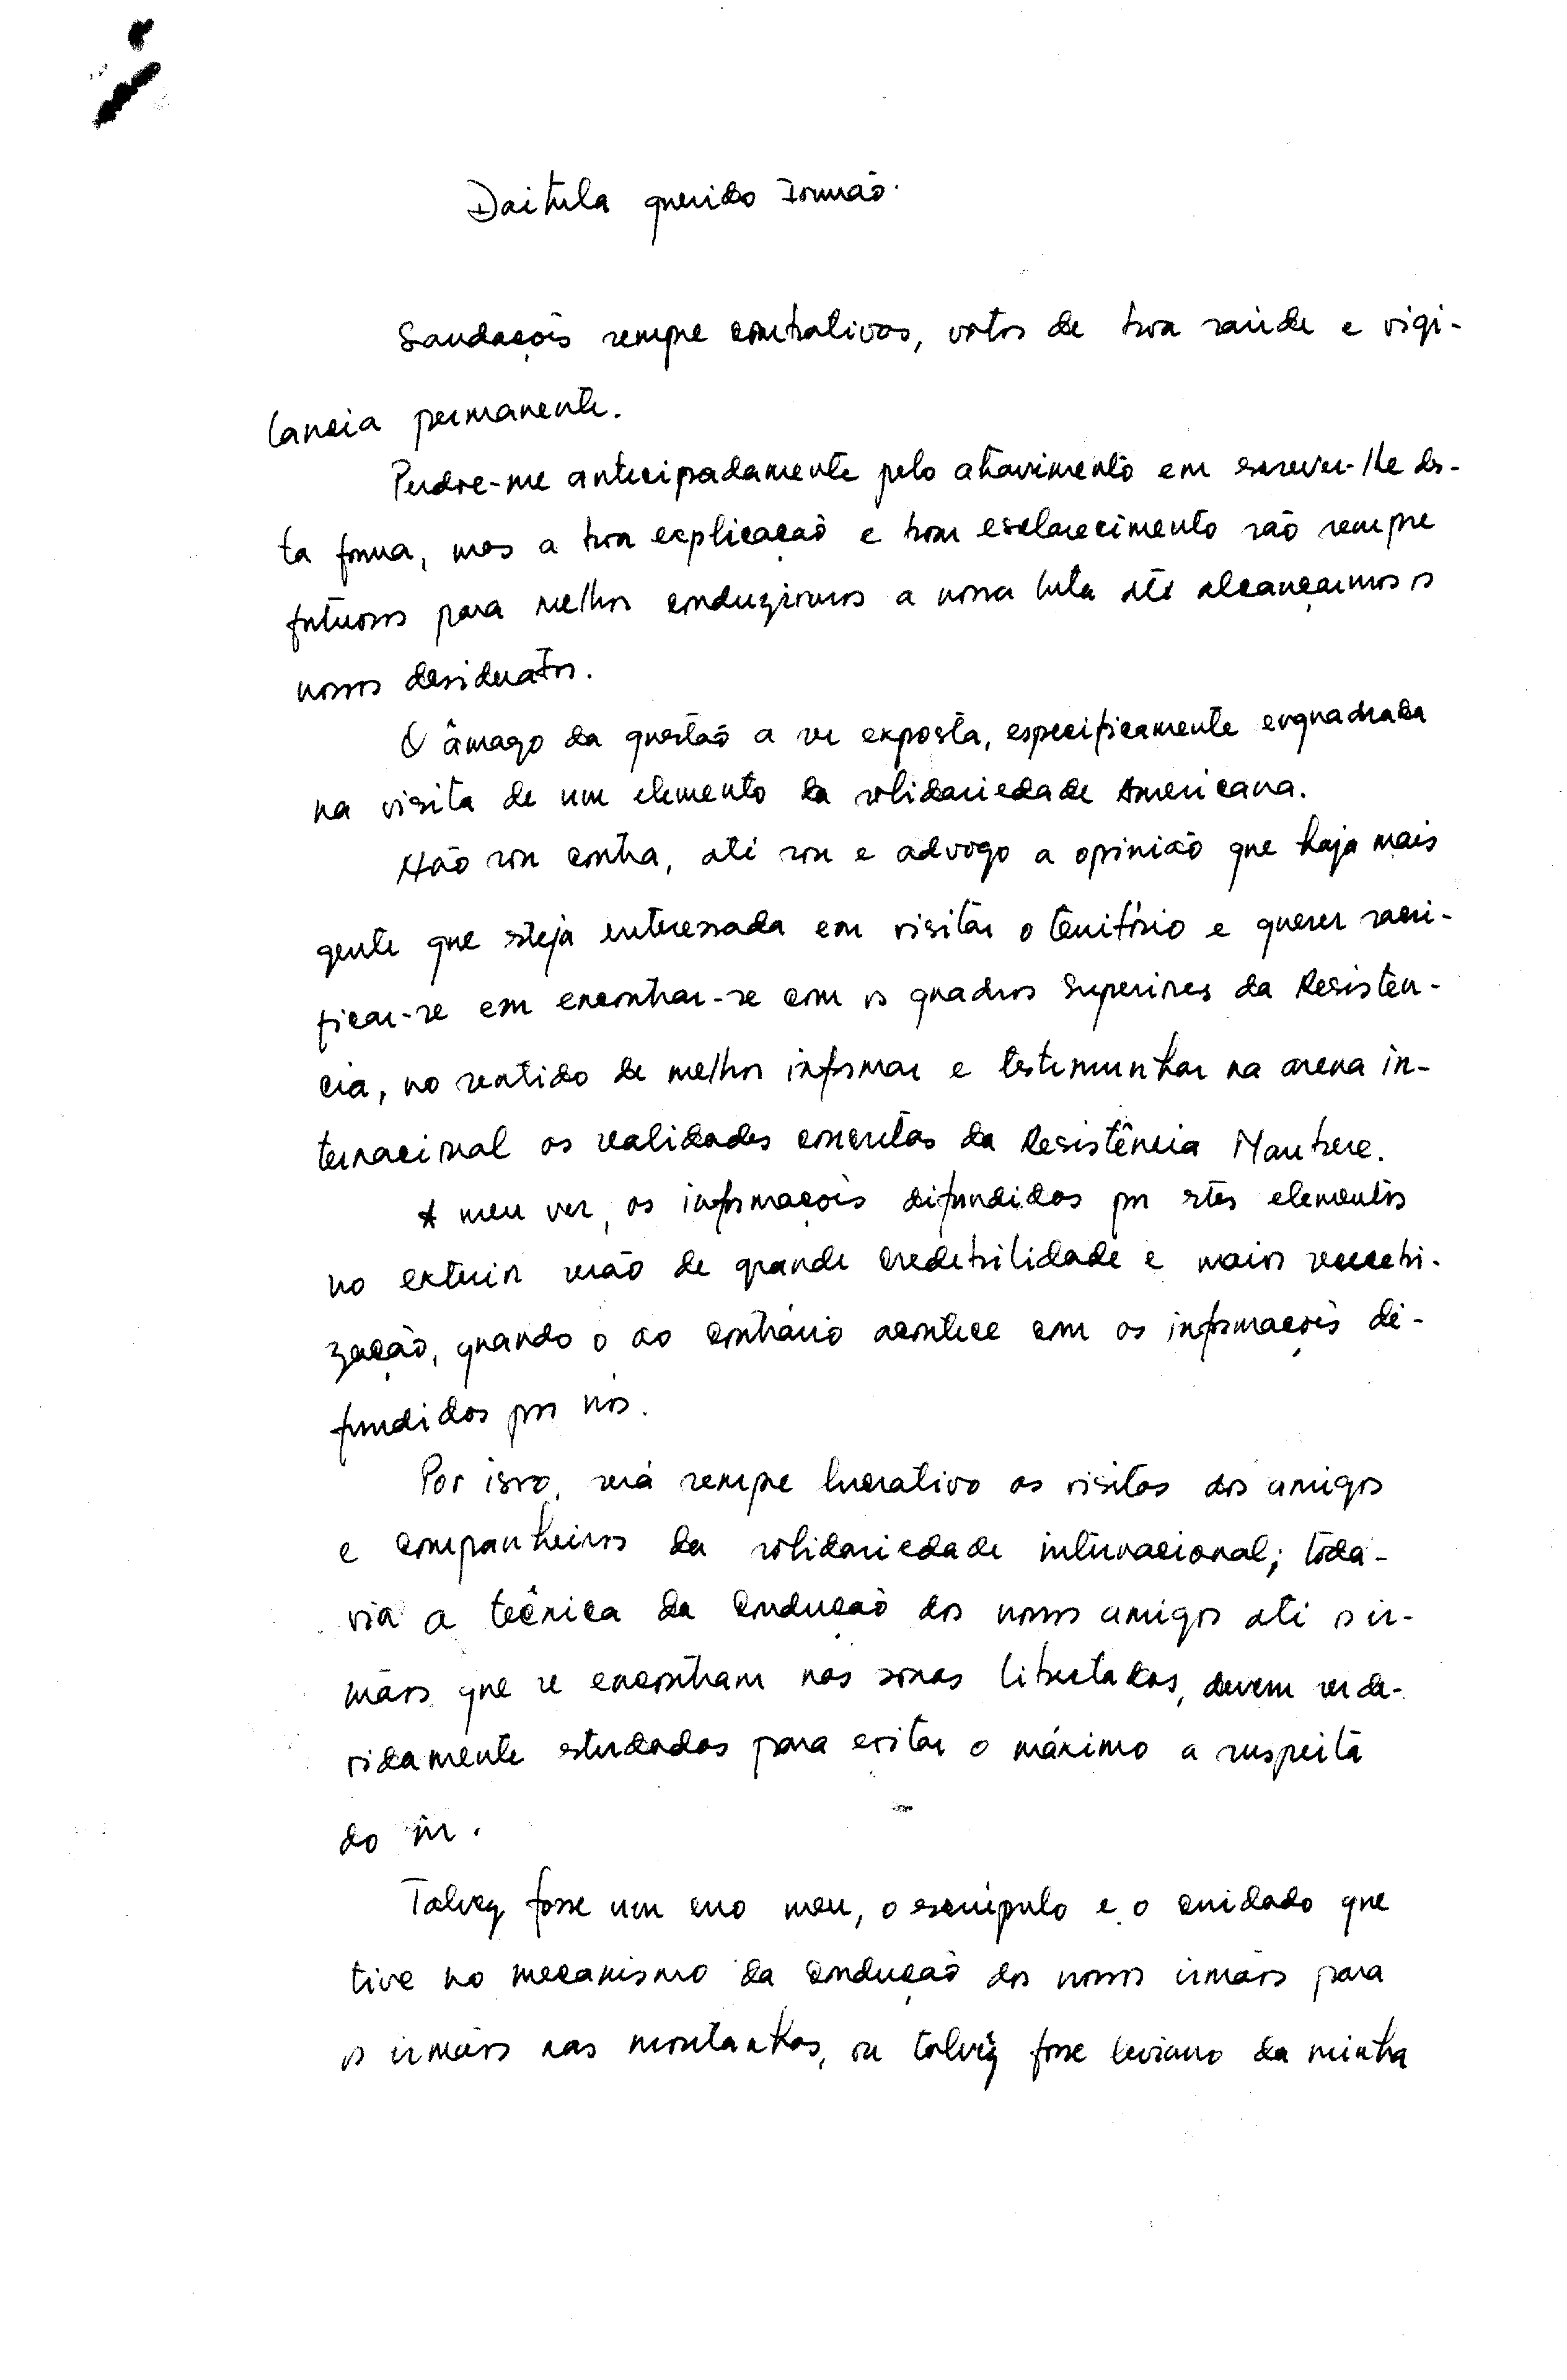 Daitula querido Irmão.
Saudações sempre combativas, votos de boa saúde e vigi-
lancia permanente.
Perdoe-me antecipadamente pelo atravimento em escrever-lhe des-
ta forma, mas a boa explicação e bom esclarecimento são sempre
para melhor conduzirmos a nossa luta até alcançarmos os
nossos desideratos.
O âmago da questão a ser exposta, especificamente enquadrada
na visita de um elemento da solidariedade Americana.
Não sou contra, até sou e advogo a opinião que haja mais
gente que esteja enteressada em visitar o território e querer sacri-
ficar-se em encontrar-se com os quadros Superiores da Resistên-
cia, no sentido de melhor informar e testemunhar na arena in-
ternacional as realidades concretas da Resistência Maubere.
A meu ver, as informações difundidas por estes elementos
no exterior serão de grande credebilidade e maior
zação, quando o ao contrário acontece com as informações di-
fundidas por nós.
Por isso, será sempre lucrativo as visitas dos amigos
e companheiros da solidariedade internacional; toda-
via a técnica da condução dos nossos amigos até os ir-
mãos que se encontram nas zonas libertadas, devem ser de-
vidamente estudadas para evitar o máximo a suspeita
do in.
Talvez fosse um erro meu, o escrúpulo e o cuidado que
tive no mecanismo da condução dos nossos irmãos para
os irmãos nas montanhas, ou talvez fosse leviano da minha